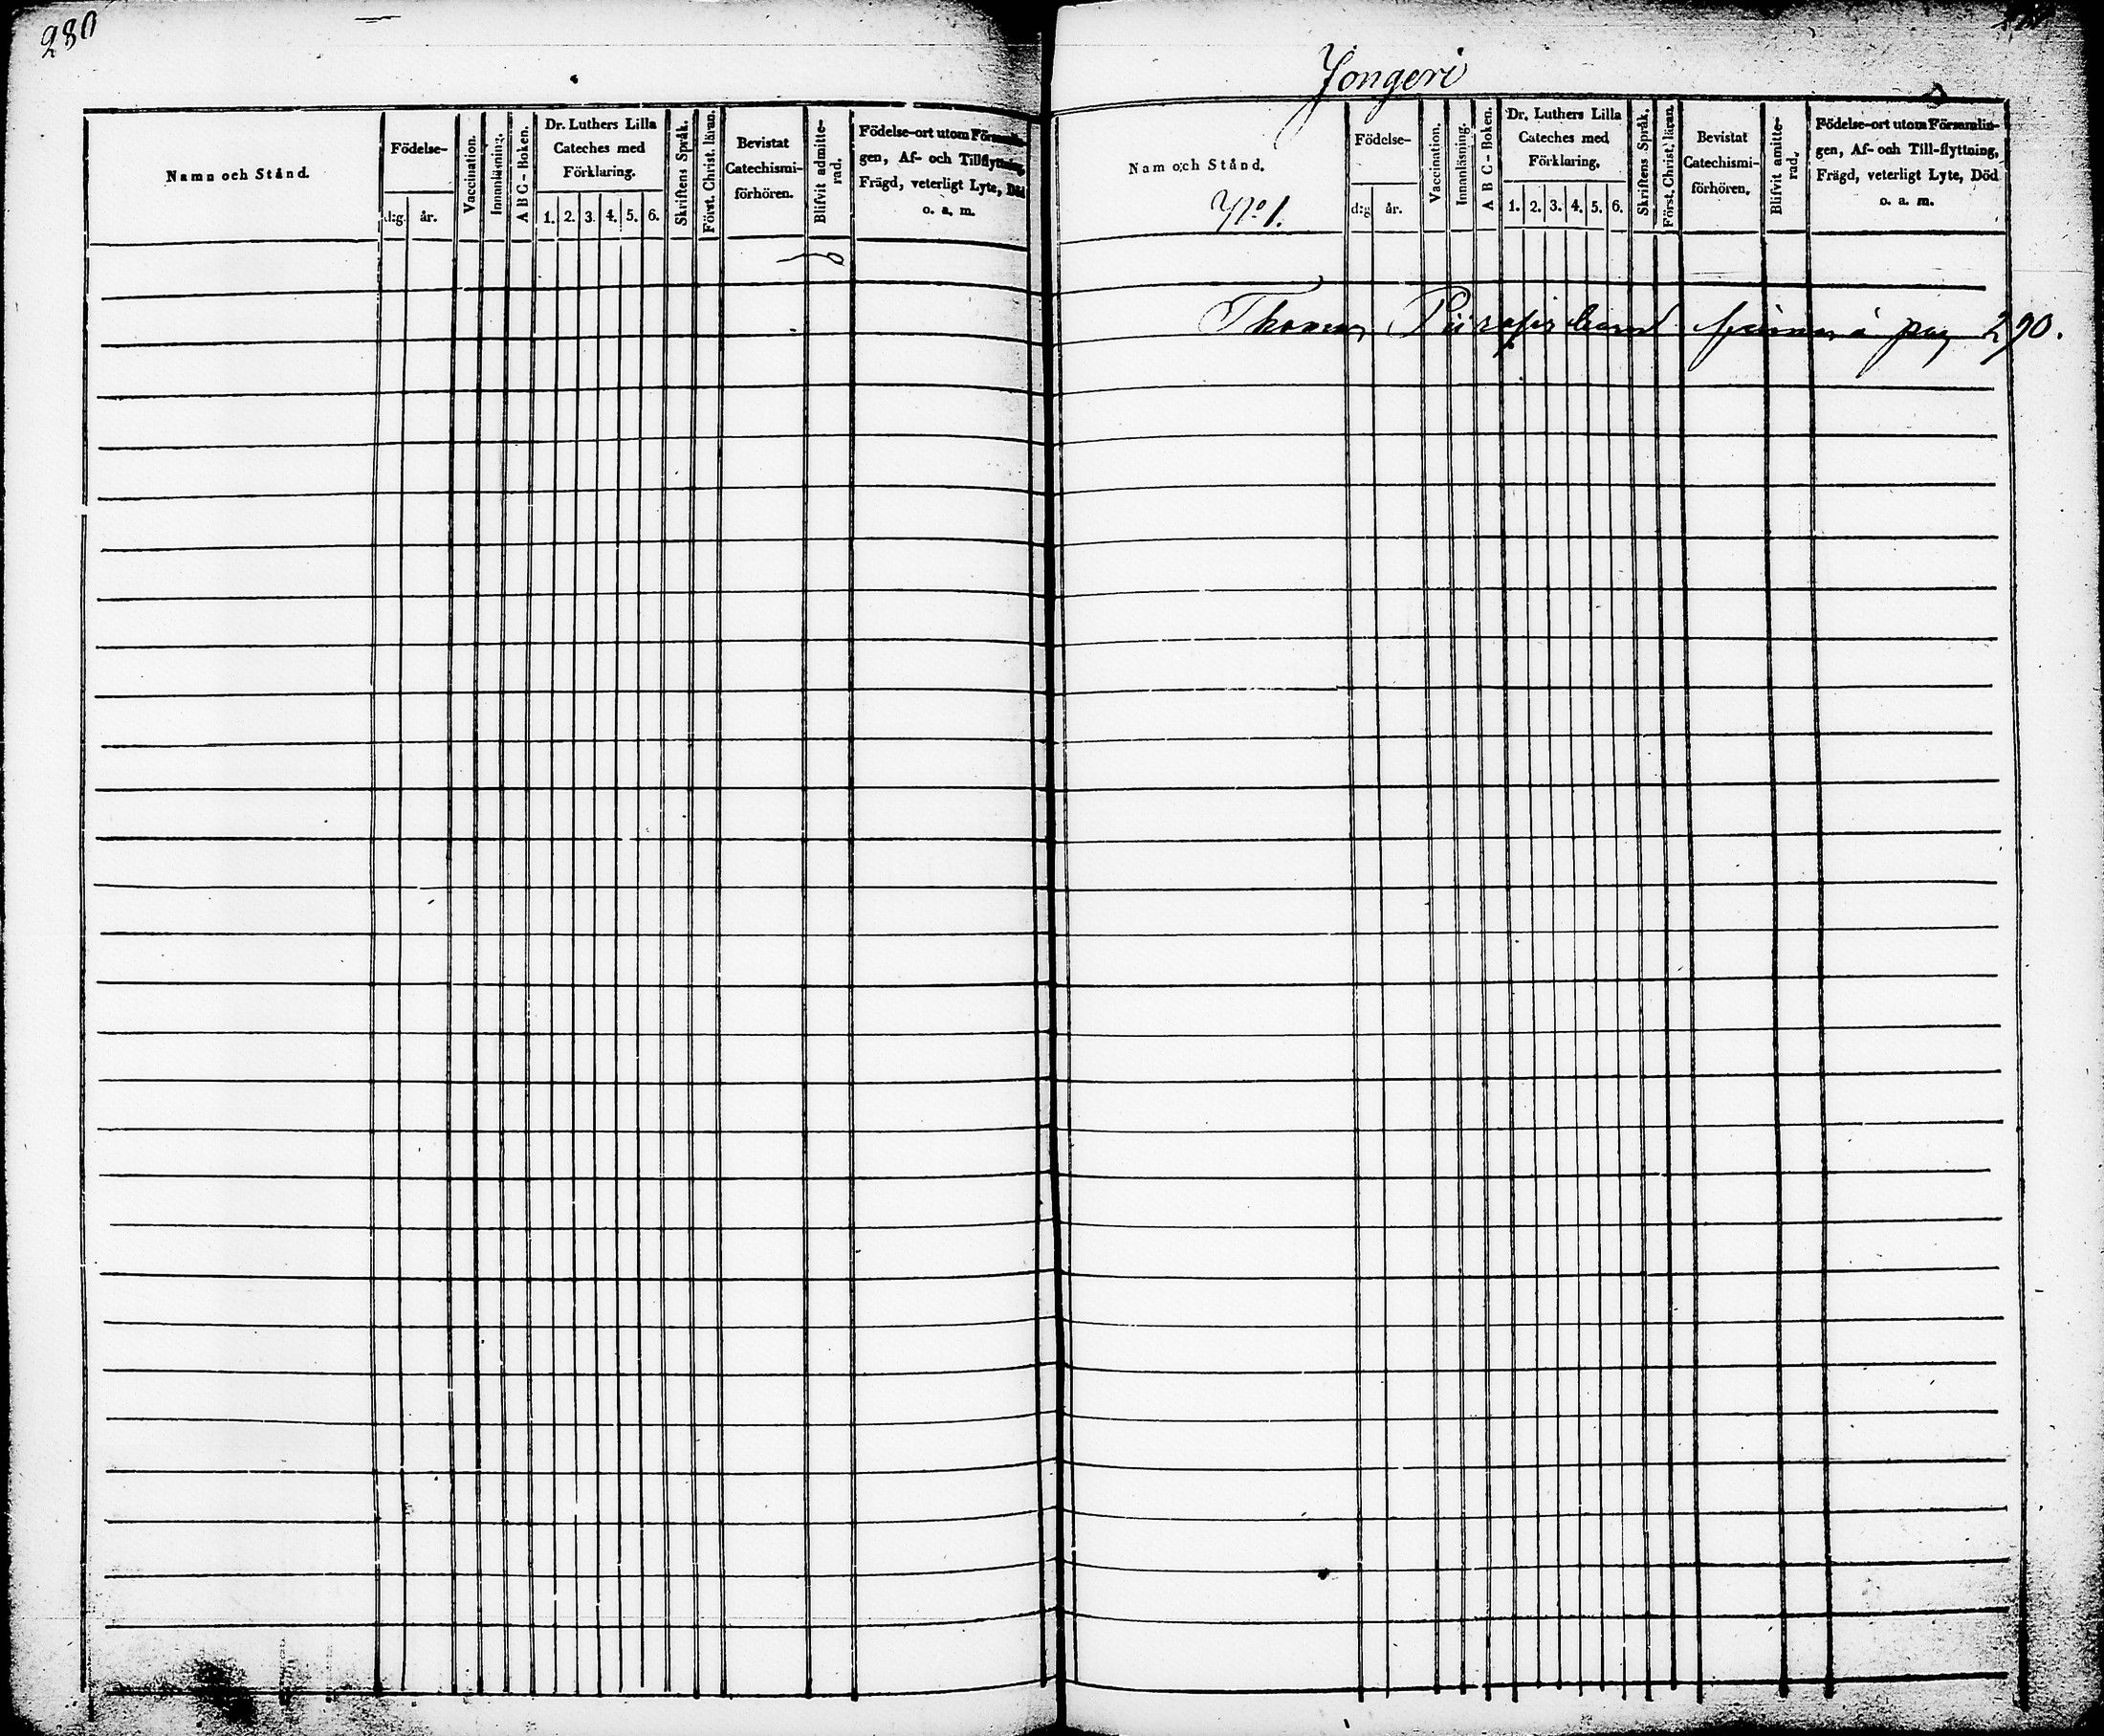 280
Namn och Stånd.
Födelse-
d:g. år.
Vaccination.
Innanläsning.
A B C - Boken.
Dr. Luthers Lilla
Cateches med
Förklaring.
1. 2. 3. 4. 5. 6.
Skriftens Språk.
Först. Christ. läran.
Bevistat
Catechismi-
förhören.
Blifvit admitte-
rad.
Födelse-ort utom Församlin-
gen, Af- och Tillflyttning,
Frägd, veterligt Lyte, Död
o. a. m.
Jongeri
Nam och Stånd.
No 1.
Födelse-
d:g år.
Vaccination.
Innanläsning.
A B C - Boken.
Dr. Luthers Lilla
Cateches med
Förklaring.
1. 2. 3. 4. 5. 6.
Skriftens Språk.
Först. Christ. läran.
Bevistat
Catechismi-
förhören.
Blifvit amitte-
rad.
Födelse-ort utom Församlin-
gen, Af- och Till-flyttning,
Frägd, veterligt Lyte, Död
o. a. m.
Thomas barn finnas å pag 290.